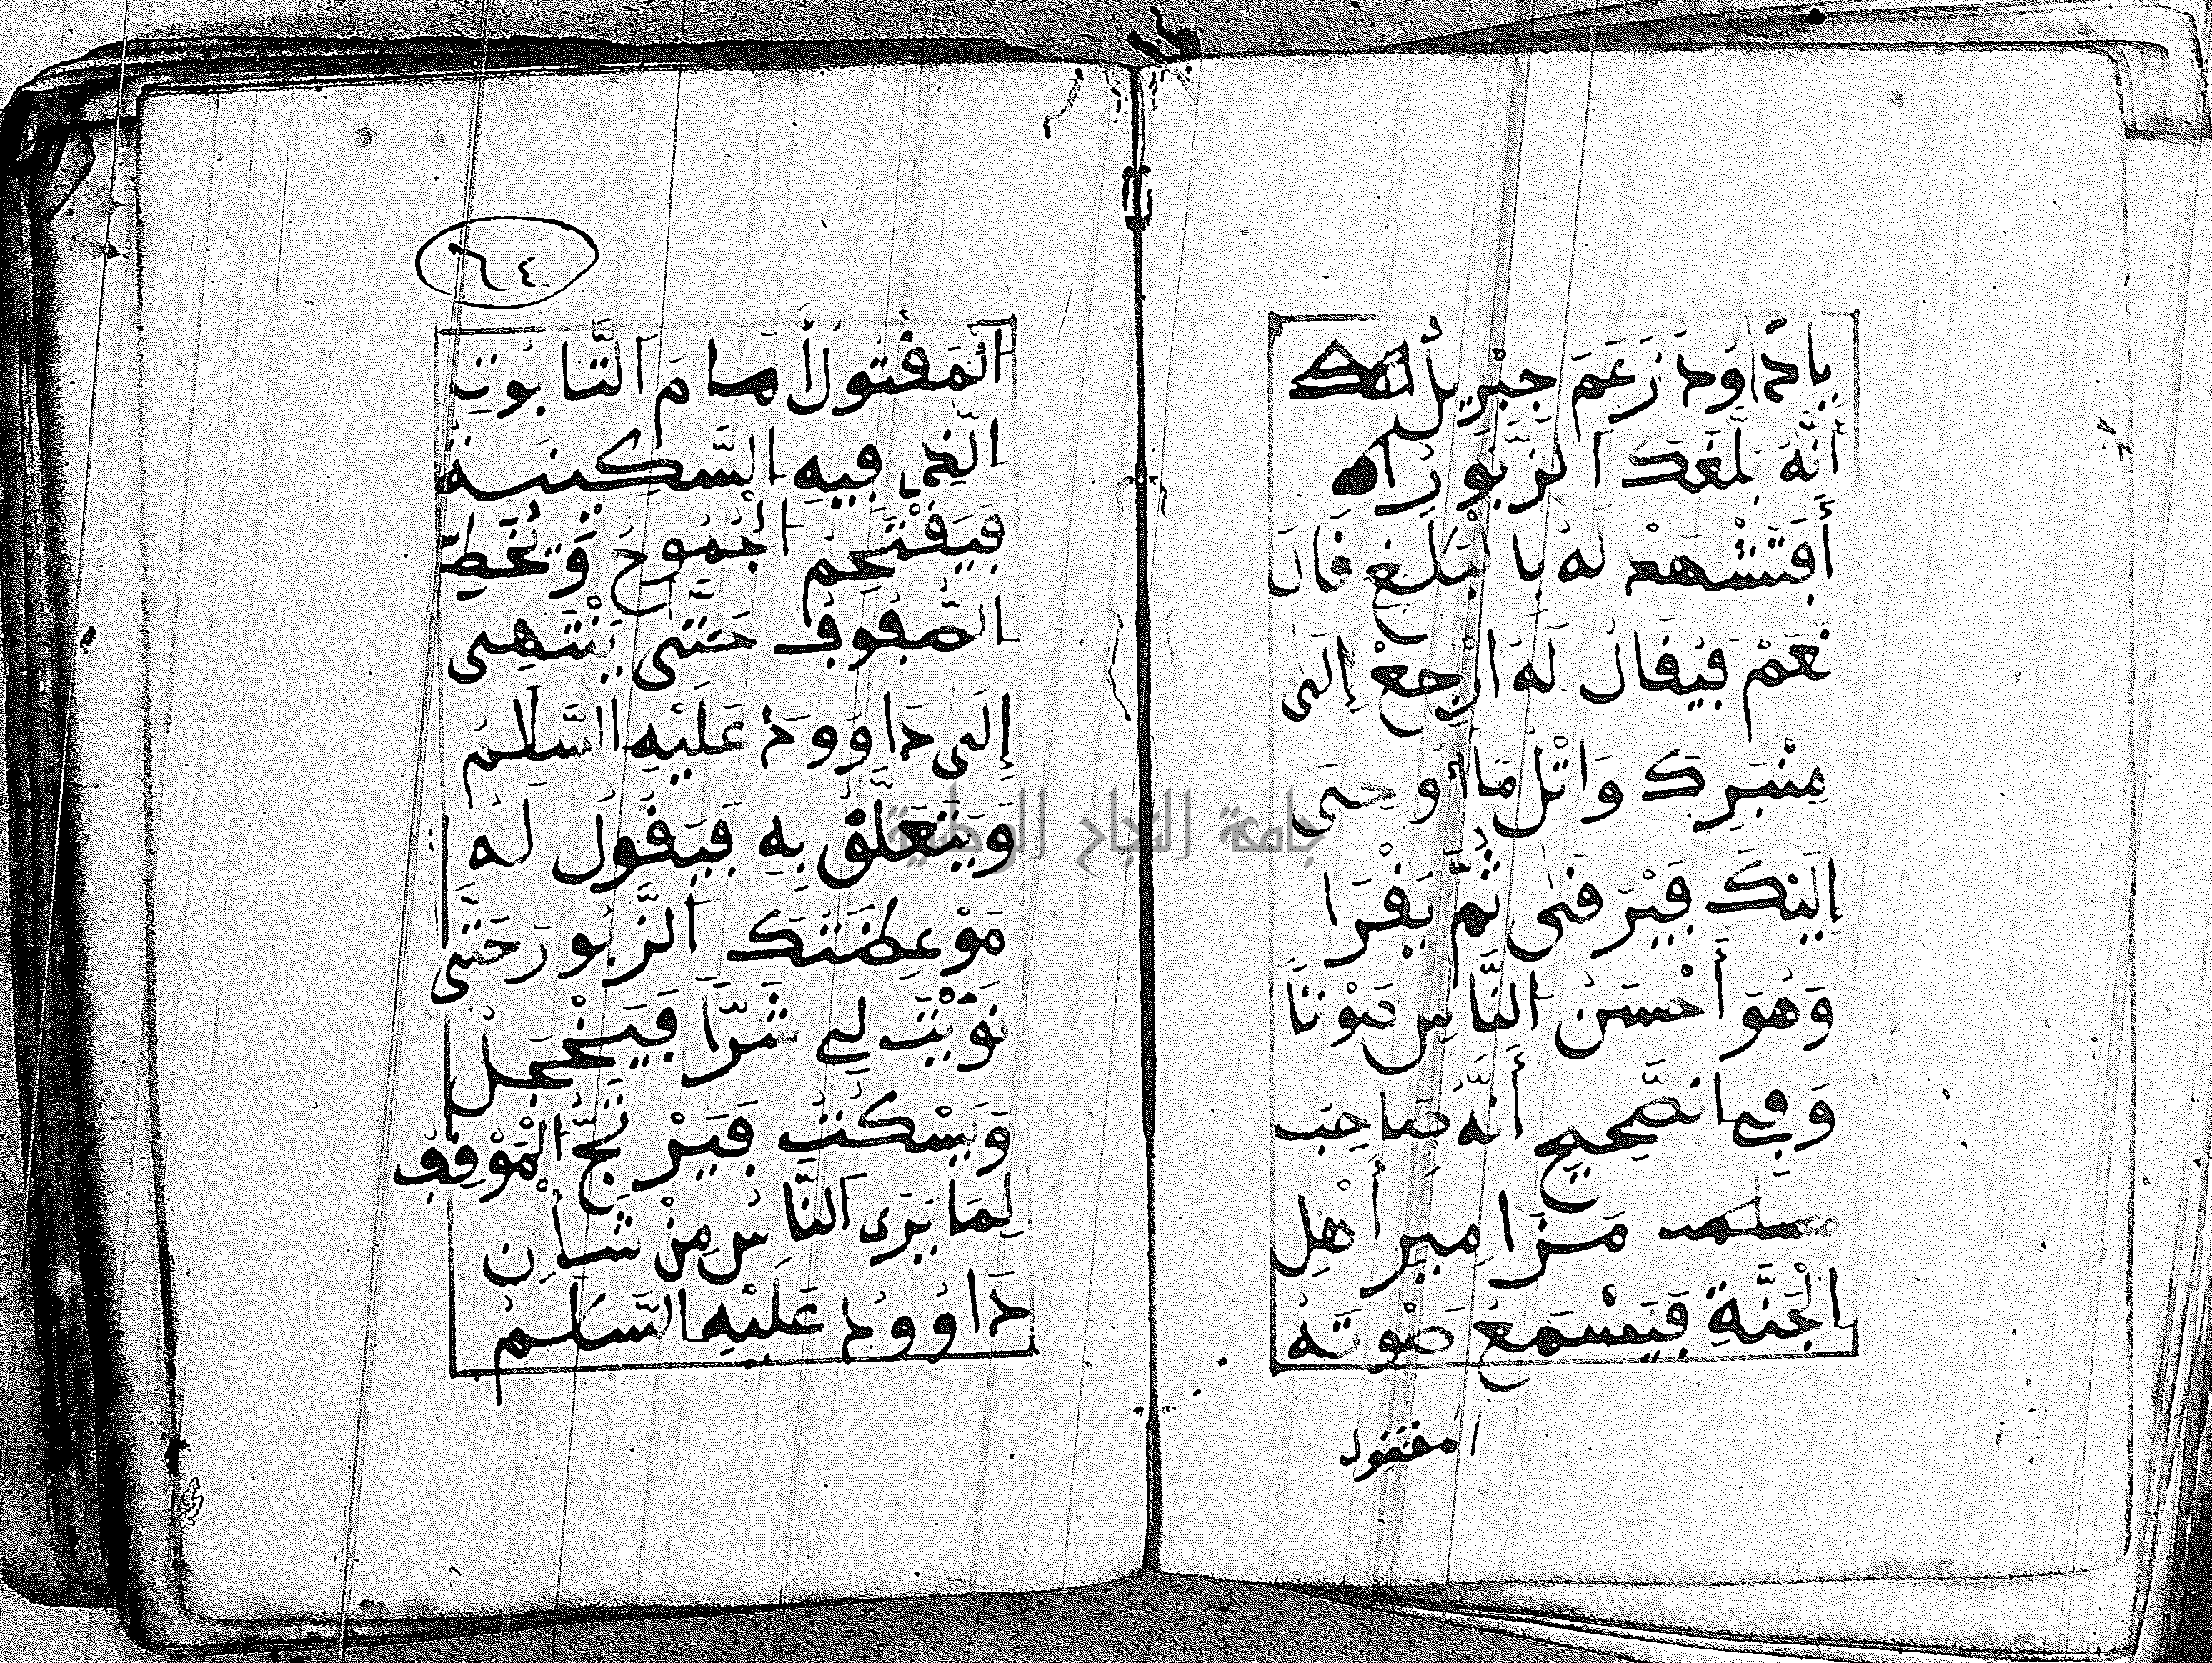 يَادَاوُدَ زَعَمَ جِبْرِيلُ
أَنَّهُ بَلَّغَكَ الزَّبُورَ
أَفَتَشْهَدُ لَهُ بِالبَلَغِ فَالَ
نَعَمْ فَيُقَالُ لَهُ ارْجِعْ إِلَى
مِنْبَرِكَ وَاتْلُ مَا أُوحِيَ
إِلَيْكَ فَيَرْقَى ثُمَّ يَقْرَا
وَهُوَ أَحْسَنُ النَّاسِ صَوْتًا
وَفِي الصَّحِيحِ أَنَّهُ صَاحِبُ
مَزَامِيرِ أَهْلِ
الْجَنَّةِ فَيَسْمَعُ صَوْتَهُ
المقتول
٦٤
الْمَقْتُولُ أَمَامَ التَّابُوتِ
الَّذِي فِيهِ السَّكِينَةُ
فَيَقْتَحِمُ الْجُمُوعَ وَيُخَطِّ
الصُّفُوفَ حَتَّى يَنْتَهِى
إِلَى دَاوُودَ عَلَيْهِ السَّلَمُ
وَيَتَعَلَّقُ بِهِ فَيَقُولُ لَهُ
مَوْعِظَتُكَ الزَّبُورَ حَتَّى
نَوَيْتَ لِي شَرًّا فَيَخْجَلُ
وَيَسْكُتُ فَيَرْتَجُّ الْمَوْقِفُ
لِمَا يَرَى النَّاسُ مِنْ شَأْنِ
دَاوُودَ عَلَيْهِ السَّلَمُ
جامعة النجاح الوطنية